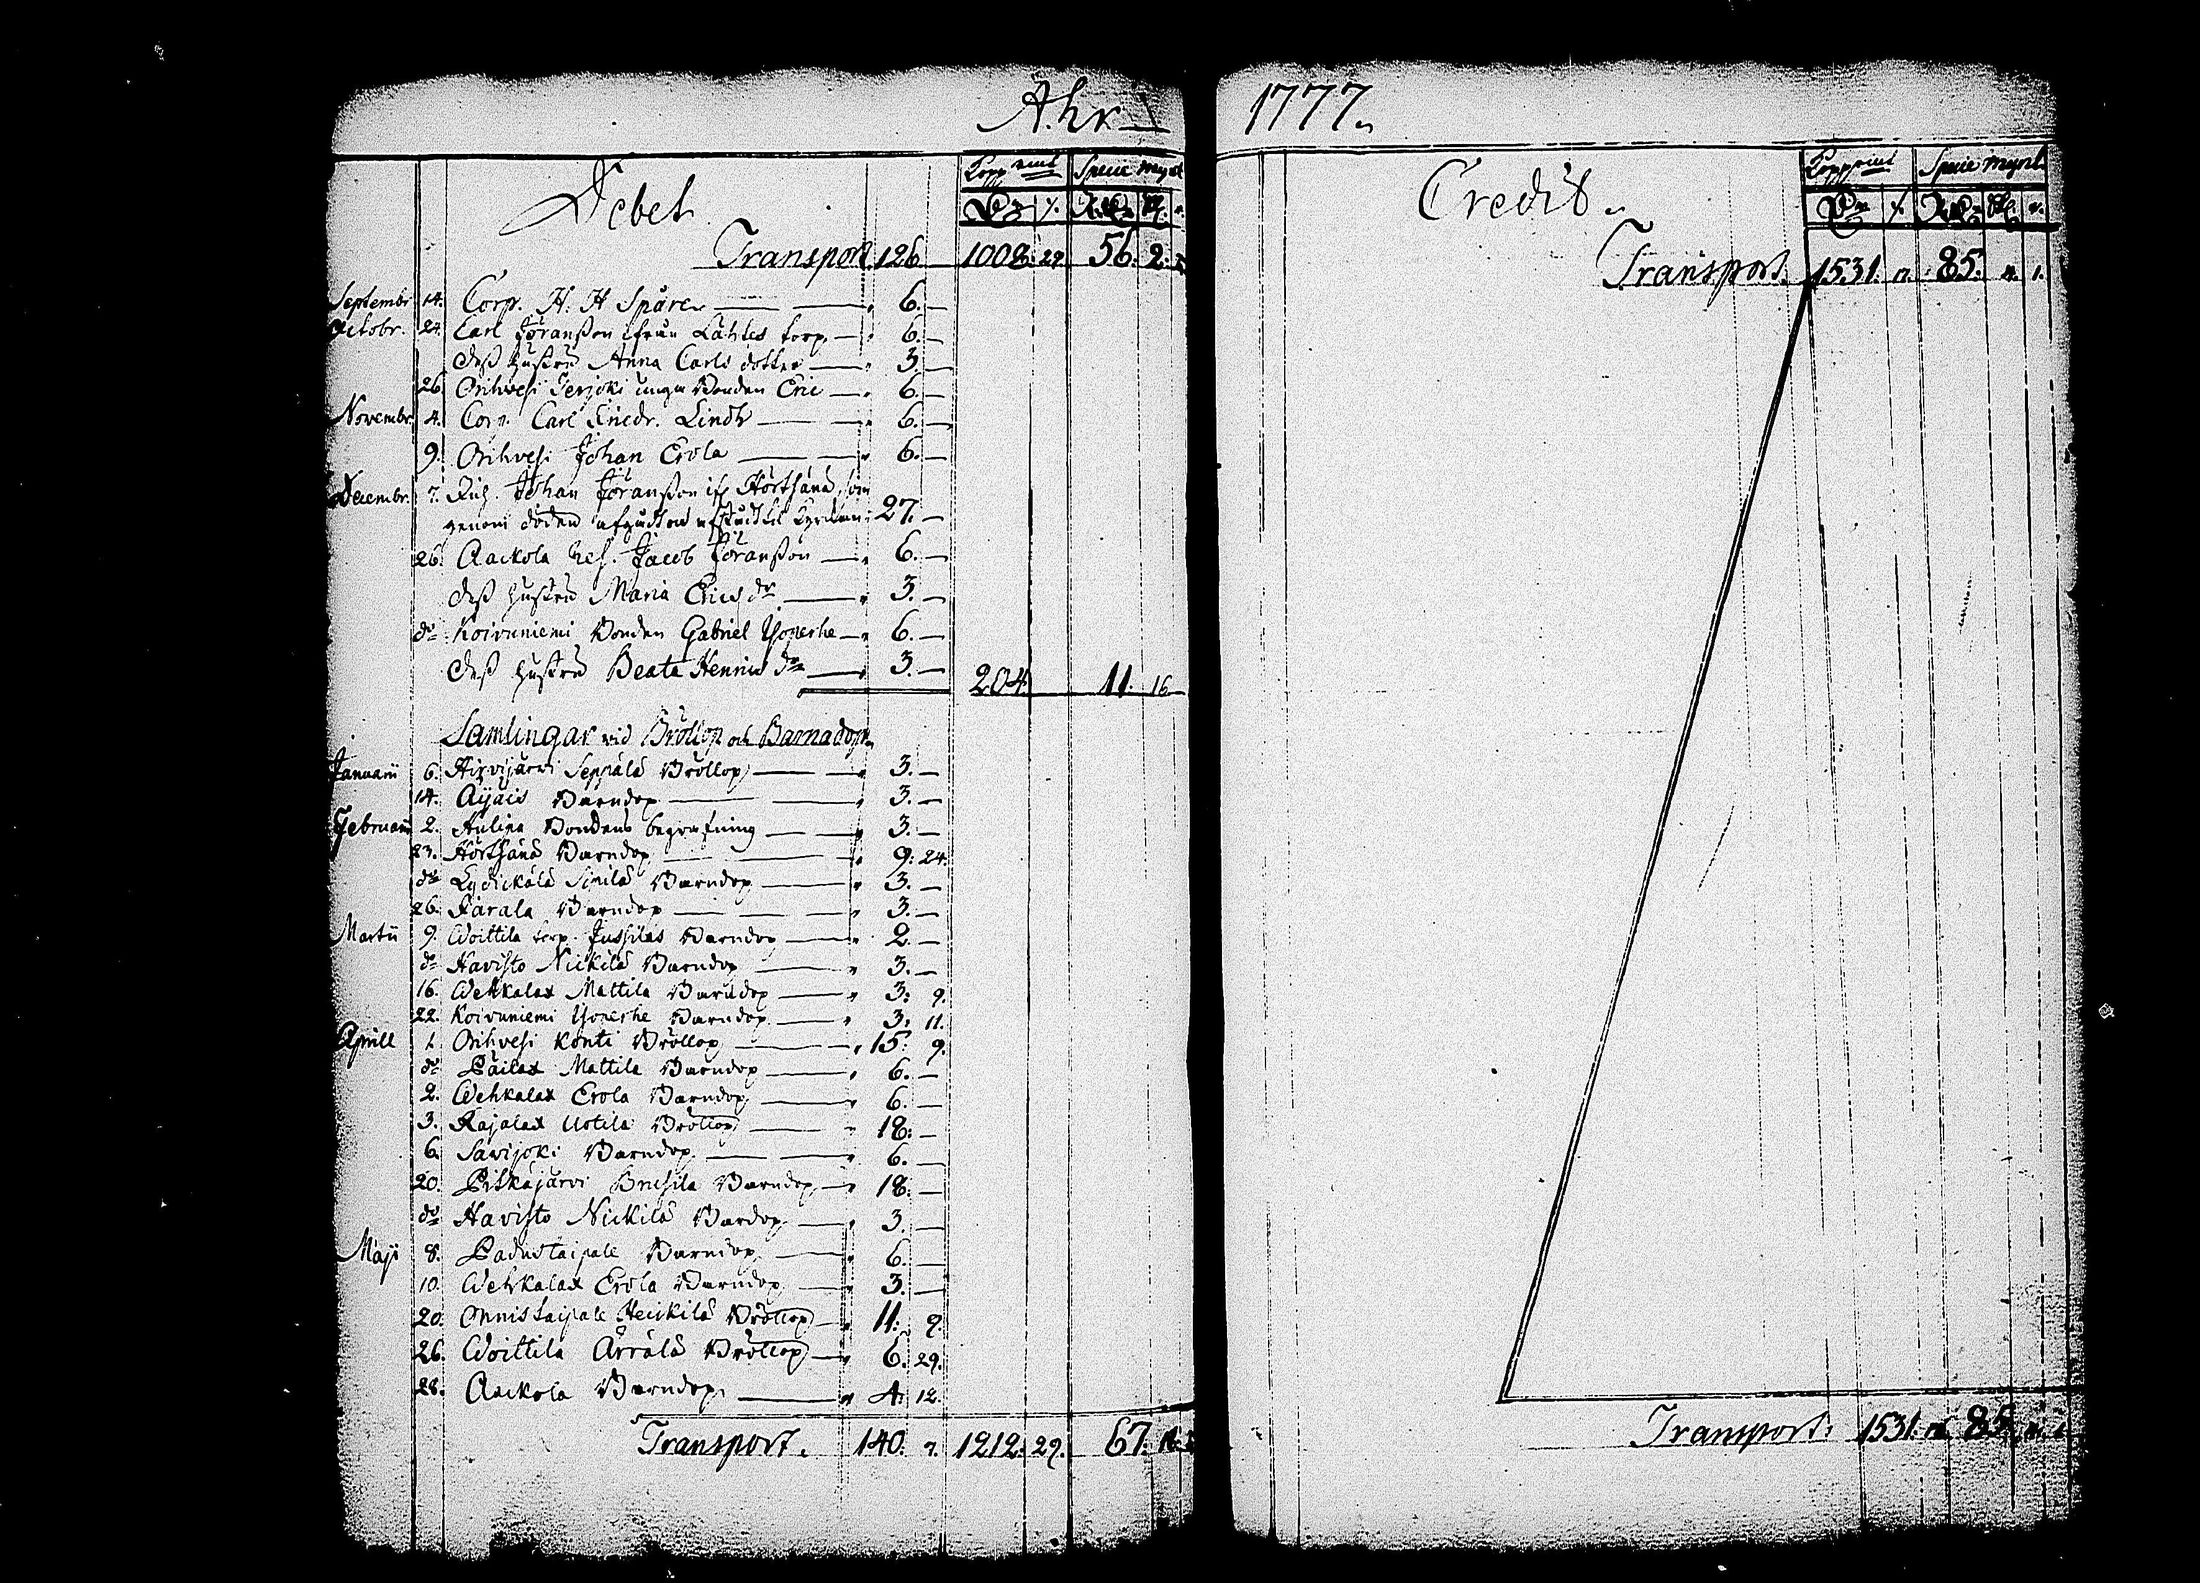 Åhr
Debet
Kopp mt Specie mynt
Transport 126. 1008: 29. 56: 2:
Septembr 14. Corp. H. H Spåre 6. —
Octobr. 24. Carl Jöranßon ifrån Lähtes torp 6. —
deß hustru Anna Carls dotter 3. —
26. Orihvesi Terjoki unga Bonden Eric 6. —
Novembr. 4. Corp. Carl Friedr. Lindh 6. —
9. Orihvesi Johan Erola 6. —
Decembr. 7. Johan Jöranßon Hörtsänä, som
genom döden 27. —
26. Aackola Jacob Jöranßon 6. —
deß hustru Maria Erics dr 3. —
do Koivuniemi Bonden Gabriel Yoperhe 6. —
deß hustru Beata Henrics dr 3. — 204. 11. 16
Samlingar vid Bröllop och Barnadop
Januarii 6. Hirvijärvi Seppälä Bröllop 3. —
14. Barndop 3. —
Februarii 2. Hulipa Bondens begrafning 3. —
23. Hörtsänä Barndop 9: 24.
do Lydickälä Simila Barndop 3. —
26. Barndop 3. —
Martii 9. Woittila torp. Jussilas Barndop 2. —
do Havisto Nickilä Barndop 3. —
16. Wehkalax Mattila Barndop 3: 9.
22. Koivuniemi Yoperhe Barndop 3: 11.
Aprill 1. Orihvesi Konti Bröllop 15: 9.
do Päilax Mattila Barndop 6. —
2. Wehkalax Erola Barndop 6. —
3. Rajalax Uotila Bröllop 18: —
6. Savijoki Barndop 6. —
20. Pitkäjärvi Brusila Barndop 18: —
do Havisto Nickilä Bardop 3. —
Maji 8. Padustaipale Barndop 6. —
10. Wehkalax Erola Barndop 3. —
20. Onnistaipale Heickilä Bröllop 11: 9.
26. Woittila Ärrälä Bröllop 6. 29.
28. Aackola Barndop 4: 12.
Transport. 140. 7. 1212: 29. 67:
1777.
Credit
Kopp mt Specie mynt
Transport. 1531. 85.
Transport: 1531: 85.